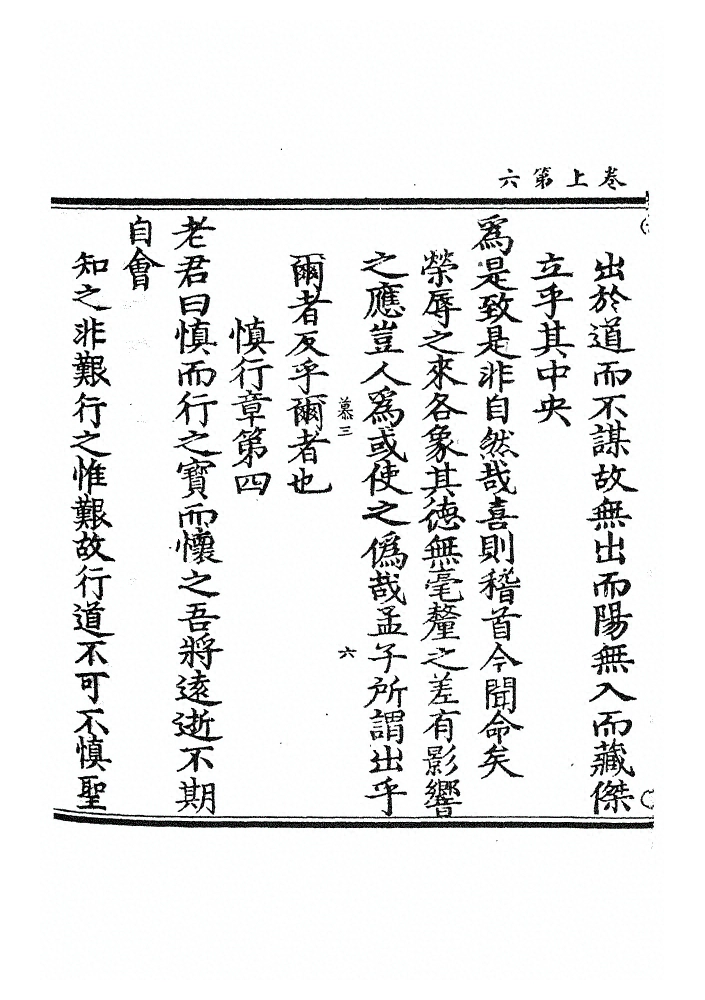 卷上第六
出於道而不謀故無出而陽無入而藏傑
立乎其中央
爲是致是非自然哉喜則稽首今聞命矣
榮辱之來各象其德無毫釐之差有影響
之應豈人爲或使之僞哉孟子所謂出乎
慕三
六
爾者反乎爾者也
慎行章第四
老君曰慎而行之寶而懷之吾將遠逝不期
自會
知之非艱行之惟艱故行道不可不慎聖